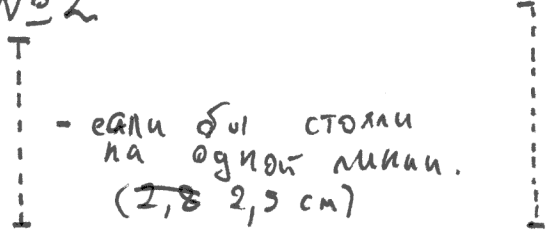 № 2
- если бы стояли
на одной линии.
(2,8 2,9 см)